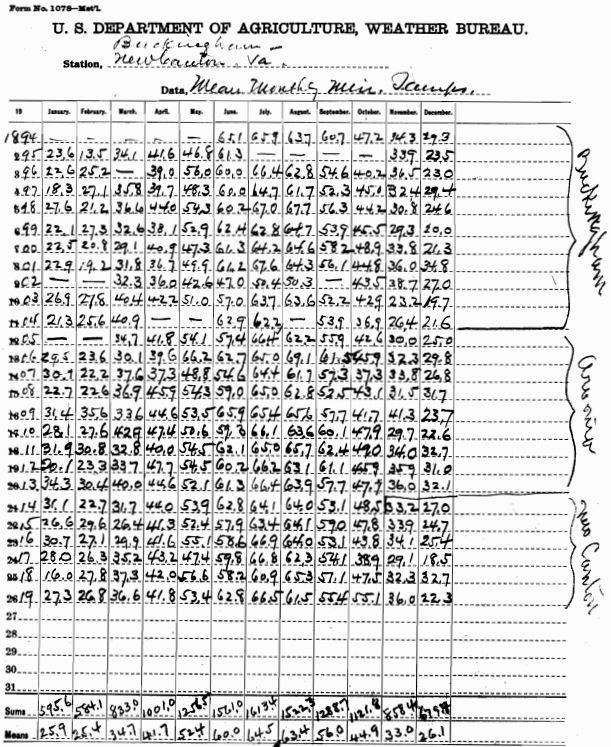 Form No. 1078—Met'l.
U. S. DEPARTMENT OF AGRICULTURE, WEATHER BUREAU.
Buckingham
Station, New Canton, Va.
Data, Mean Monthly Min. Temps.
19 January. February. March. April. May. June. July. August. September. October. November. December.
1894 — — — — — 65.1 65.9 63.7 60.7 47.2 34.3 29.3
895 23.6 13.5 34.1 41.6 46.8 61.3 — — — — 33.9 23.5
896 22.6 25.2 — 39.0 56.0 60.0 66.4 62.8 54.6 40.2 36.5 23.0
897 18.3 27.1 35.8 39.7 48.3 60.0 64.7 61.7 52.3 45.0 32.4 29.4
898 27.6 21.2 36.6 44.0 54.3 60.2 67.0 67.7 56.3 44.2 30.8 24.6
899 22.1 27.3 32.6 38.1 52.9 62.4 62.8 64.7 53.9 45.5 29.3 20.0
900 22.5 20.8 29.1 40.9 47.3 61.3 64.2 64.6 58.2 48.9 33.8 21.3
801 22.9 19.2 31.8 36.7 49.9 61.2 67.6 64.3 56.1 44.8 36.0 34.8
902 — — 32.3 36.0 42.6 47.0 50.4 50.3 — 43.5 38.7 27.0
1003 26.9 27.8 40.4 42.2 51.0 57.0 63.7 63.6 52.2 42.9 23.2 19.7
1104 21.3 25.6 40.9 — — 62.9 62.2 — 53.9 36.9 26.4 21.6
1205 — — 34.7 41.8 54.1 57.4 66.4 62.2 55.9 42.6 30.0 25.0
1306 29.5 23.6 30.1 39.6 66.2 62.7 65.0 69.1 61.5 45.9 32.3 29.8
1407 30.9 22.2 37.6 37.3 48.8 54.6 64.4 61.7 57.3 37.3 33.8 26.8
1508 22.7 22.6 36.9 45.9 54.3 59.0 65.0 62.8 52.5 43.1 31.5 31.7
1609 31.4 35.6 33.6 44.6 53.5 65.9 65.4 65.6 57.7 41.7 41.3 23.7
1710 28.1 27.6 42.9 47.4 50.6 59.3 66.1 63.6 60.1 47.9 29.7 22.6
1811 31.9 30.8 32.8 40.0 54.5 62.1 65.0 65.7 62.4 49.0 34.0 32.7
1912 20.1 23.3 33.7 47.7 54.5 60.2 66.2 63.1 61.1 46.9 35.9 31.0
2013 34.3 30.4 40.0 44.6 52.1 61.3 66.4 63.9 57.7 47.7 36.0 32.1
2114 31.1 22.7 31.7 44.0 53.9 62.8 64.1 64.0 53.1 48.5 33.2 27.0
2215 26.6 29.6 26.4 41.3 52.4 57.9 63.4 64.1 59.0 47.8 33.9 24.7
2316 30.7 27.1 29.9 41.6 55.1 58.6 66.9 64.0 53.1 43.8 34.1 25.4
2417 28.0 26.3 35.2 43.2 47.4 59.8 66.8 62.3 54.1 38.9 29.1 18.5
2518 16.0 27.8 37.3 42.0 56.6 58.2 60.9 65.3 57.1 47.5 32.3 32.7
2619 27.3 26.8 36.6 41.8 53.4 62.8 66.5 61.5 55.4 55.1 36.0 22.3
27
28
29
30
31
Sums 595.6 584.1 833.0 1001.0 1256.5 1561.0 1613.4 1522.3 1288.7 1121.8 858.4 679.8
Means 25.9 25.4 34.7 41.7 52.4 60.0 64.5 63.4 56.0 44.9 33.0 26.1
Buckingham
Arvonia
New Canton